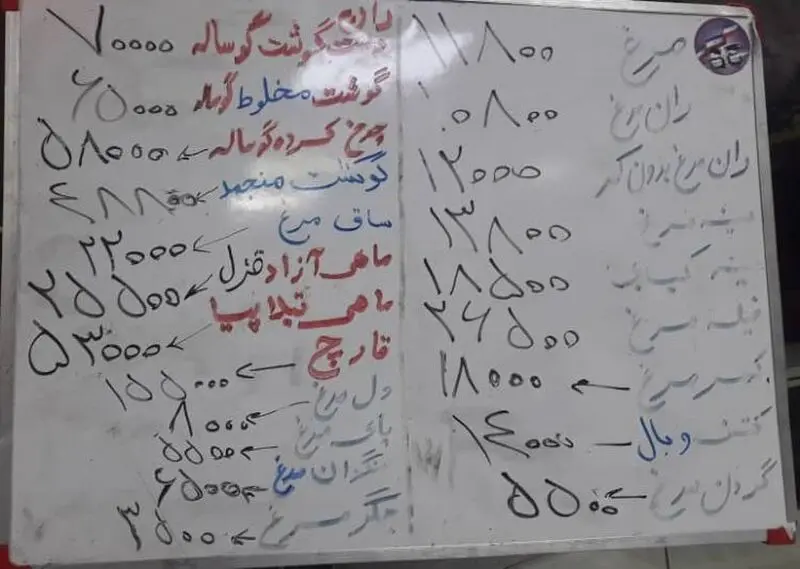 مرغ ۱۱۸۰۰
ران مرغ ۱۰۸۰۰
ران مرغ بدون کمر ۱۲۰۰۰
سینه مرغ ۱۳۸۰۰
سینه کبابی ۱۸۵۰۰
فیله مرغ ۲۶۵۰۰
کمر مرغ ۱۸۰۰۰
کتف و بال ۱۴۰۰۰
گردن مرغ ۵۵۰۰
ران و دست گوشت گوساله ۷۰۰۰۰
گوشت مخلوط گوساله ۶۵۰۰۰
چرخ کرده گوساله ۵۸۰۰۰
گوشت منجمد ۴۸۸۰۰
ساق مرغ ۲۲۰۰۰
ماهی آزاد قزل ۲۵۵۰۰
ماهی تیلاپیا ۵۳۰۰۰
قارچ ۱۵۵۰۰۰
دل مرغ ۸۰۰۰
پای مرغ ۵۵۰۰
سنگدان مرغ ۶۵۰۰
جگر مرغ ۳۵۰۰